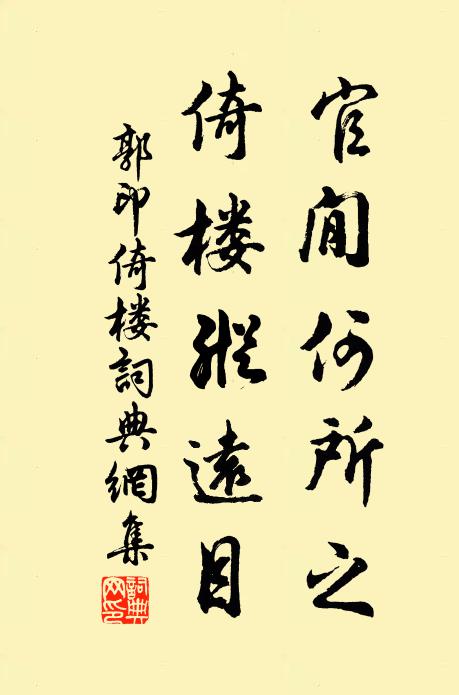 官閒何所之
倚楼縱遠目
郭印倚楼詞典網集
詞典网印